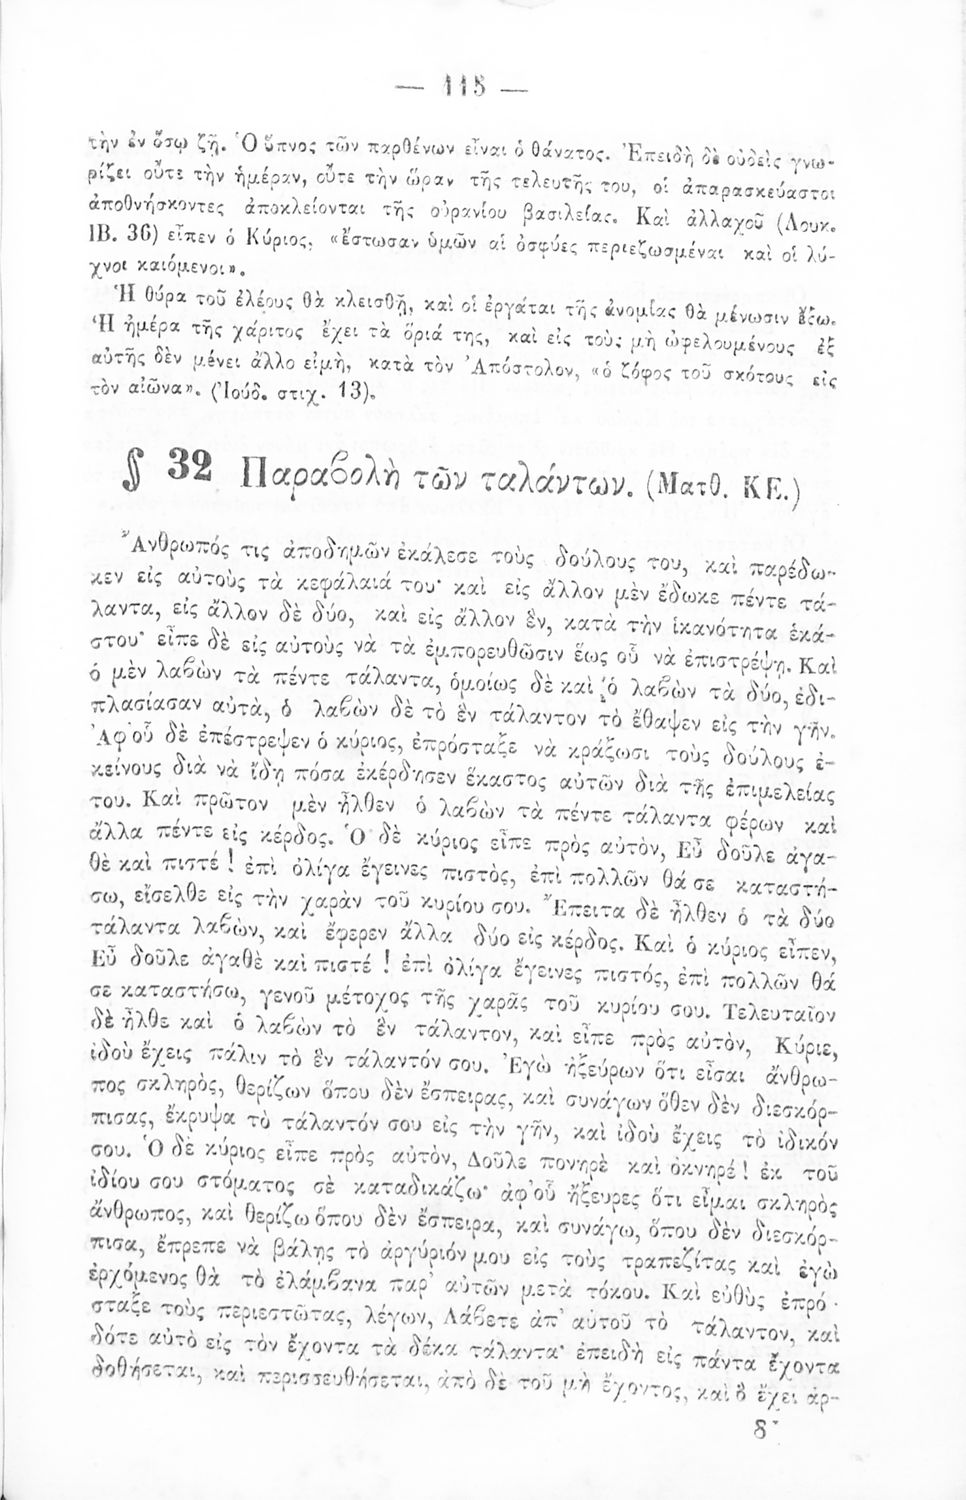 — 115 —
τὴν ἐν ὅσῳ ζῇ. Ὁ ὕπνος τῶν παρθένων εἶναι ὁ θάνατος. Ἐπειδὴ δὲ οὐδεὶς γνω-
ρίζει οὔτε τὴν ἡμέραν, οὔτε τὴν ὥραν τῆς τελευτῆς του, οἱ ἀπαρασκεύαστοι
ἀποθνήσκοντες ἀποκλείονται τῆς οὐρανίου βασιλείας. Καὶ ἀλλαχοῦ (Λουκ.
ΙΒ. 36) εἶπεν ὁ Κύριος, «ἔστωσαν ὑμῶν αἱ ὀσφύες περιεζωσμέναι καὶ οἱ λύ-
χνοι καιόμενοι».
Ἡ θύρα τοῦ ἐλέους θὰ κλεισθῇ, καὶ οἱ ἐργάται τῆς ἀνομίας θὰ μένωσιν ἔξω.
Ἡ ἡμέρα τῆς χάριτος ἔχει τὰ ὅριά της, καὶ εἰς τοὺς μὴ ὠφελουμένους ἐξ
αὐτῆς δὲν μένει ἄλλο εἰμὴ, κατὰ τὸν Ἀπόστολον, «ὁ ζόφος τοῦ σκότους εἰς
τὸν αἰῶνα». (Ἰούδ. στιχ. 13).
§ 32 Παραβολὴ τῶν ταλάντων. (Ματθ. ΚΕ.)
Ἄνθρωπός τις ἀποδημῶν ἐκάλεσε τοὺς δούλους του, καὶ παρέδω-
κεν εἰς αὐτοὺς τὰ κεφάλαιά του· καὶ εἰς ἄλλον μὲν ἔδωκε πέντε τά-
λαντα, εἰς ἄλλον δὲ δύο, καὶ εἰς ἄλλον ἓν, κατὰ τὴν ἱκανότητα ἑκά-
στου· εἶπε δὲ εἰς αὐτοὺς νὰ τὰ ἐμπορευθῶσιν ἕως οὗ νὰ ἐπιστρέψῃ. Καὶ
ὁ μὲν λαβὼν τὰ πέντε τάλαντα, ὁμοίως δὲ καὶ ὁ λαβὼν τὰ δύο, ἐδι-
πλασίασαν αὐτὰ, ὁ λαβὼν δὲ τὸ ἓν τάλαντον τὸ ἔθαψεν εἰς τὴν γῆν.
Ἀφ'οὗ δὲ ἐπέστρεψεν ὁ κύριος, ἐπρόσταξε νὰ κράξωσι τοὺς δούλους ἐ-
κείνους διὰ νὰ ἴδῃ πόσα ἐκέρδησεν ἕκαστος αὐτῶν διὰ τῆς ἐπιμελείας
του. Καὶ πρῶτον μὲν ἦλθεν ὁ λαβὼν τὰ πέντε τάλαντα φέρων καὶ
ἄλλα πέντε εἰς κέρδος. Ὁ δὲ κύριος εἶπε πρὸς αὐτὸν, Εὖ δοῦλε ἀγα-
θὲ καὶ πιστέ ! ἐπὶ ὀλίγα ἔγεινες πιστὸς, ἐπὶ πολλῶν θά σε καταστή-
σω, εἴσελθε εἰς τὴν χαρὰν τοῦ κυρίου σου. Ἔπειτα δὲ ἦλθεν ὁ τὰ δύο
τάλαντα λαβὼν, καὶ ἔφερεν ἄλλα δύο εἰς κέρδος. Καὶ ὁ κύριος εἶπεν,
Εὖ δοῦλε ἀγαθὲ καὶ πιστέ ! ἐπὶ ὀλίγα ἔγεινες πιστός, ἐπὶ πολλῶν θά
σε καταστήσω, γενοῦ μέτοχος τῆς χαρᾶς τοῦ κυρίου σου. Τελευταῖον
δὲ ἦλθε καὶ ὁ λαβὼν τὸ ἓν τάλαντον, καὶ εἶπε πρὸς αὐτὸν, Κύριε,
ἰδοὺ ἔχεις πάλιν τὸ ἓν τάλαντόν σου. Ἐγὼ ἠξεύρων ὅτι εἶσαι ἄνθρω-
πος σκληρὸς, θερίζων ὅπου δὲν ἔσπειρας, καὶ συνάγων ὅθεν δὲν διεσκόρ-
πισας, ἔκρυψα τὸ τάλαντόν σου εἰς τὴν γῆν, καὶ ἰδοὺ ἔχεις τὸ ἰδικόν
σου. Ὁ δὲ κύριος εἶπε πρὸς αὐτὸν, Δοῦλε πονηρὲ καὶ ὀκνηρέ ! ἐκ τοῦ
ἰδίου σου στόματος σὲ καταδικάζω· ἀφ'οὗ ἤξευρες ὅτι εἶμαι σκληρὸς
ἄνθρωπος, καὶ θερίζω ὅπου δὲν ἔσπειρα, καὶ συνάγω, ὅπου δὲν διεσκόρ-
πισα, ἔπρεπε νὰ βάλῃς τὸ ἀργύριόν μου εἰς τοὺς τραπεζίτας καὶ ἐγὼ
ἐρχόμενος θὰ τὸ ἐλάμβανα παρ' αὐτῶν μετὰ τόκου. Καὶ εὐθὺς ἐπρό-
σταξε τοὺς περιεστῶτας, λέγων, Λάβετε ἀπ' αὐτοῦ τὸ τάλαντον, καὶ
δότε αὐτὸ εἰς τὸν ἔχοντα τὰ δέκα τάλαντα· ἐπειδὴ εἰς πάντα ἔχοντα
δοθήσεται, καὶ περισσευθήσεται, ἀπὸ δὲ τοῦ μὴ ἔχοντος, καὶ ὃ ἔχει ἀρ-
8*